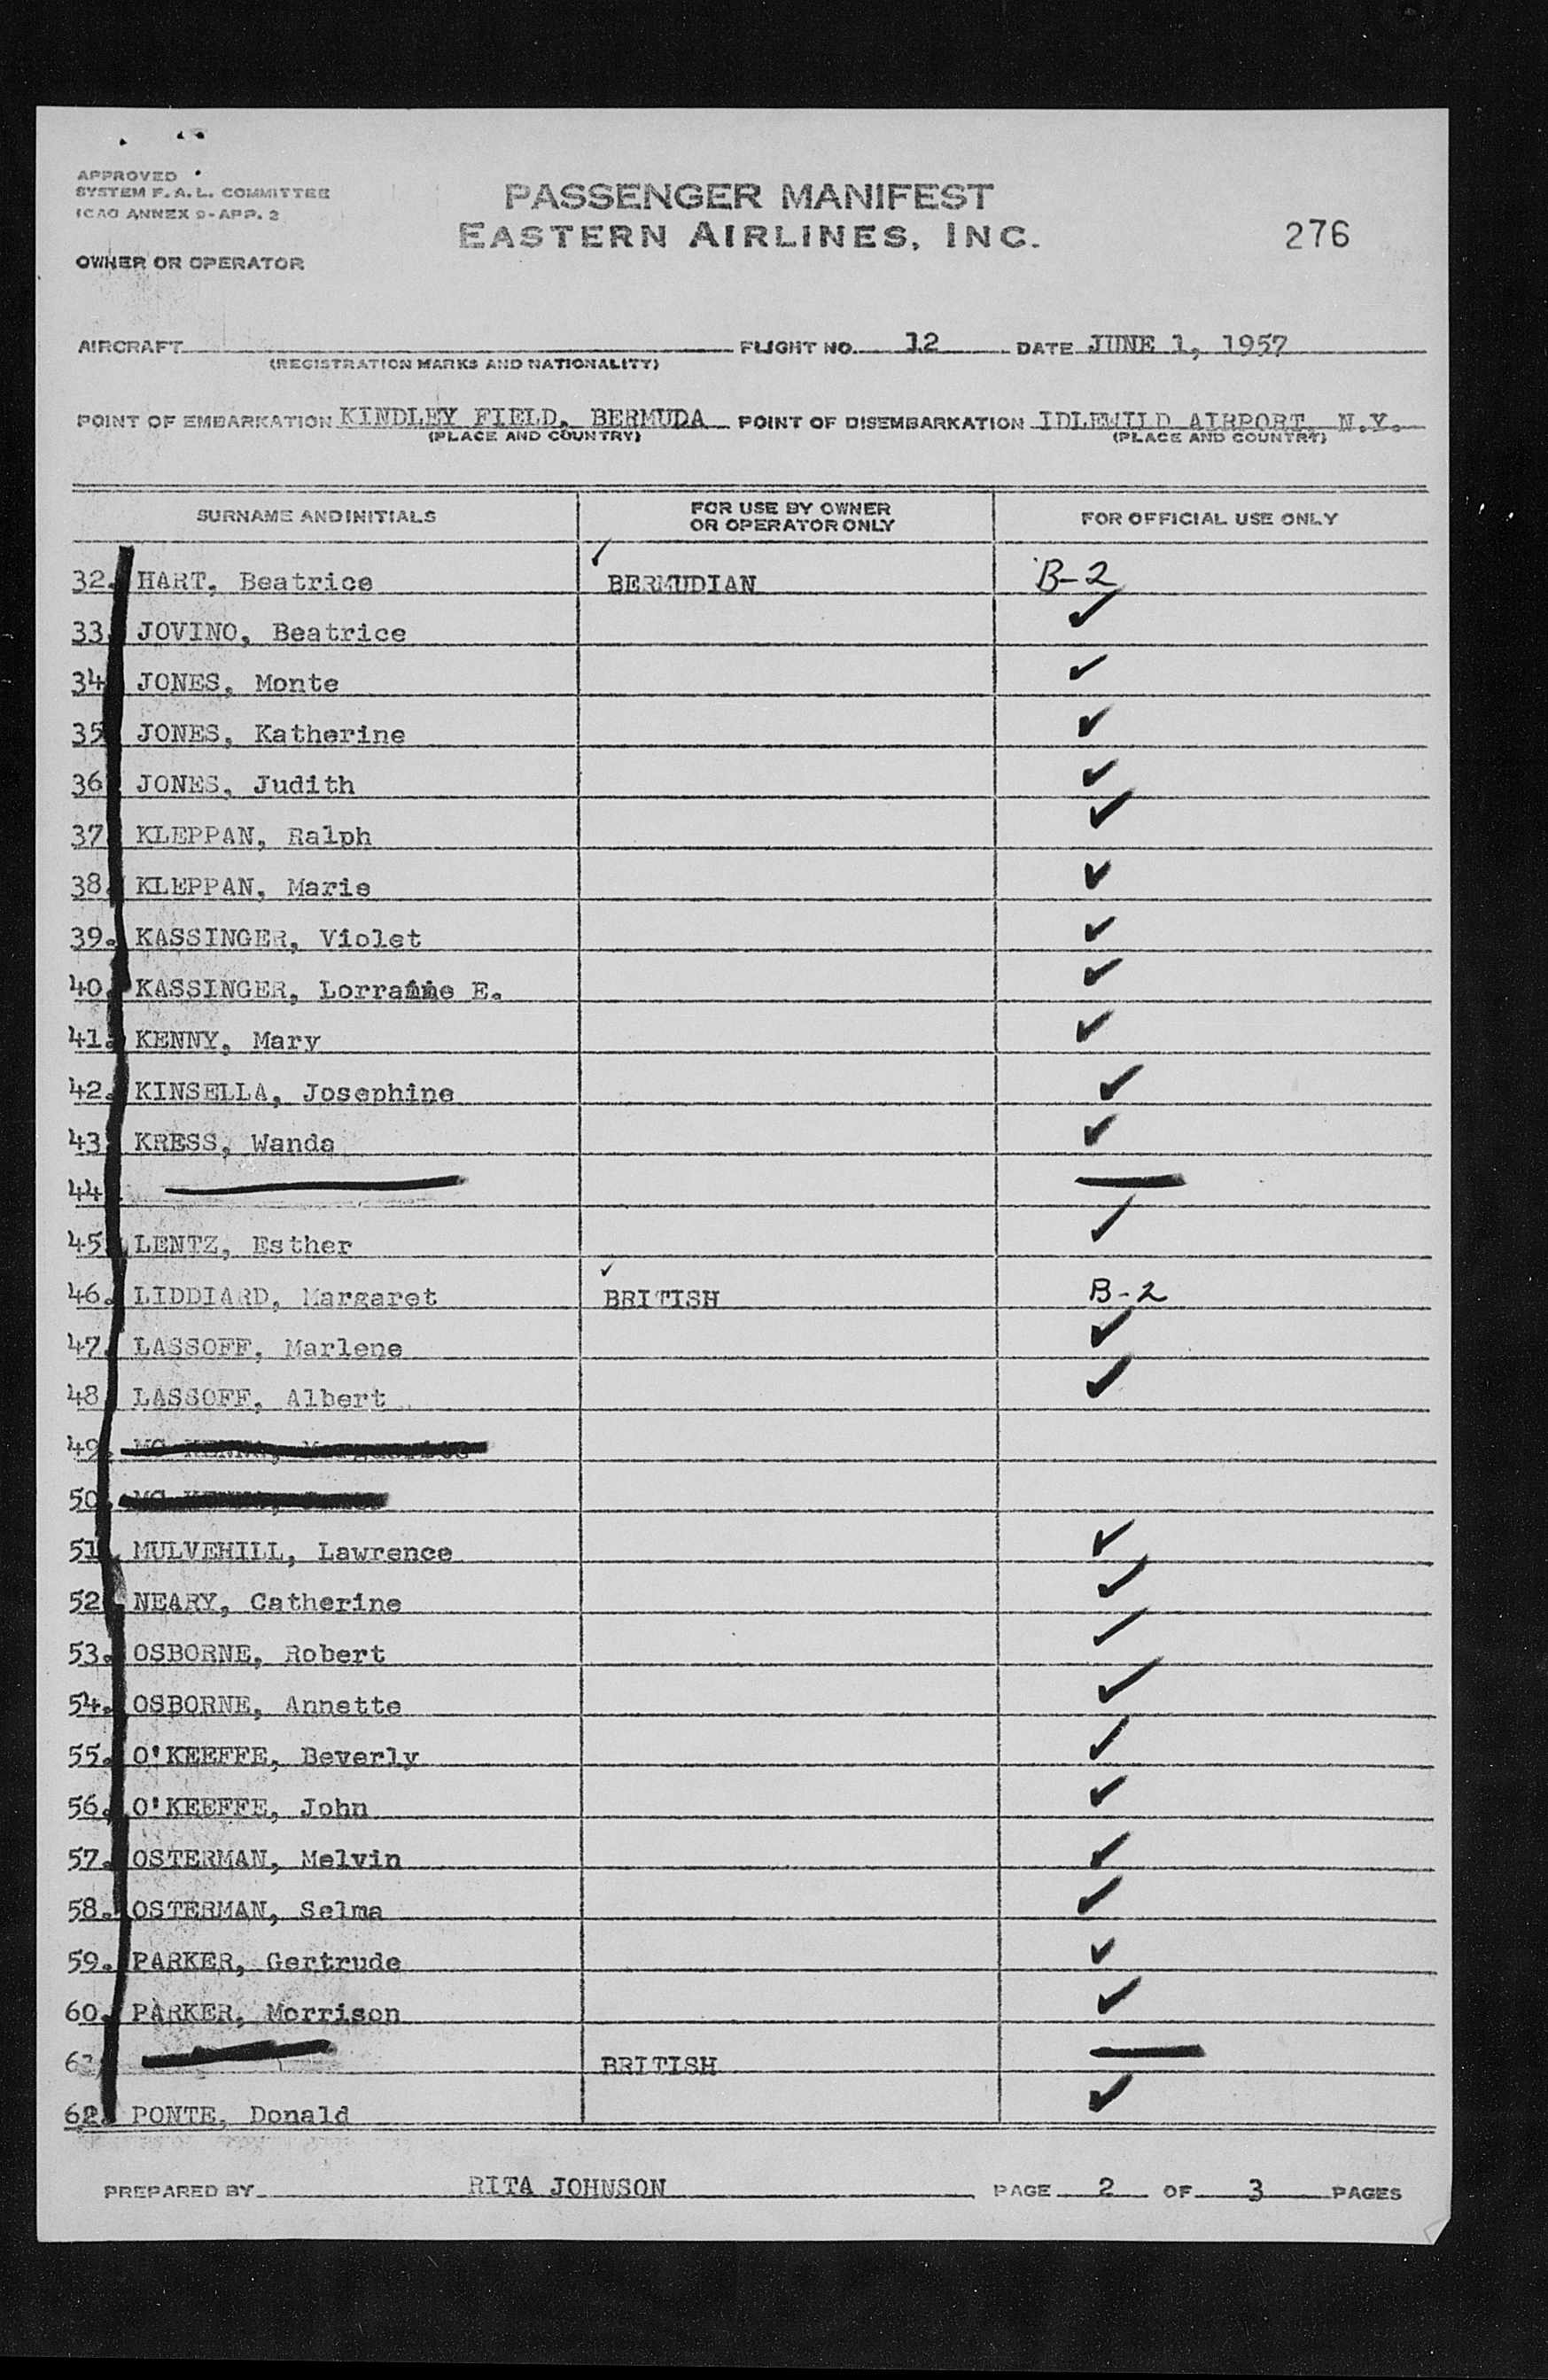 APPROVED
SYSTEM F. A. L. COMMITTEE
ICAO ANNEX 9-APP. 2
PASSENGER MANIFEST
EASTERN AIRLINES, INC.
276
OWNER OR OPERATOR
AIRCRAFT FLIGHT NO. 12 DATE JUNE 1, 1957
(REGISTRATION MARKS AND NATIONALITY)
POINT OF EMBARKATION KINDLEY FIELD, BERMUDA POINT OF DISEMBARKATION IDLEWILD AIRPORT, N.Y.
(PLACE AND COUNTRY) (PLACE AND COUNTRY)
SURNAME AND INITIALS FOR USE BY OWNER OR OPERATOR ONLY FOR OFFICIAL USE ONLY
32. HART, Beatrice ✓ BERMUDIAN B-2
33. JOVINO, Beatrice ✓
34. JONES, Monte ✓
35. JONES, Katherine ✓
36. JONES, Judith ✓
37. KLEPPAN, Ralph ✓
38. KLEPPAN, Marie ✓
39. KASSINGER, Violet ✓
40. KASSINGER, Lorraine E. ✓
41. KENNY, Mary ✓
42. KINSELLA, Josephine ✓
43. KRESS, Wanda ✓
44.
45. LENTZ, Esther ✓
46. LIDDIARD, Margaret ✓ BRITISH B-2
47. LASSOFF, Marlene ✓
48. LASSOFF, Albert ✓
49. MC
50. MC
51. MULVEHILL, Lawrence ✓
52. NEARY, Catherine ✓
53. OSBORNE, Robert ✓
54. OSBORNE, Annette ✓
55. O'KEEFFE, Beverly ✓
56. O'KEEFFE, John ✓
57. OSTERMAN, Melvin ✓
58. OSTERMAN, Selma ✓
59. PARKER, Gertrude ✓
60. PARKER, Morrison ✓
BRITISH
62. PONTE, Donald ✓
PREPARED BY RITA JOHNSON PAGE 2 OF 3 PAGES